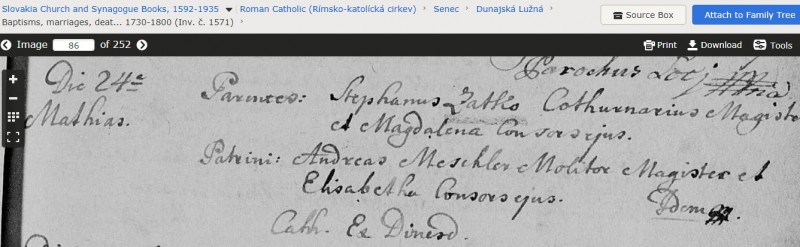 Slovakia Church and Synagogue Books, 1592-1935 Roman Catholic (Rímsko-katolícká cirkev) Senec Dunajská Lužná
Baptisms, marriages, deat... 1730-1800 (Inv. č. 1571)
Source Box
Attach to Family Tree
Image 86 of 252
Print Download Tools
Parochus Locj
Die 24ª
Mathias.
Parentes: Stephanus Zathko Cothurnarius Magiste
et Magdalena Consorsejus.
Patrini: Andreas Meschler Molitor Magister et
Elisabetha Consorsejus.
Idem
Cath. Ex